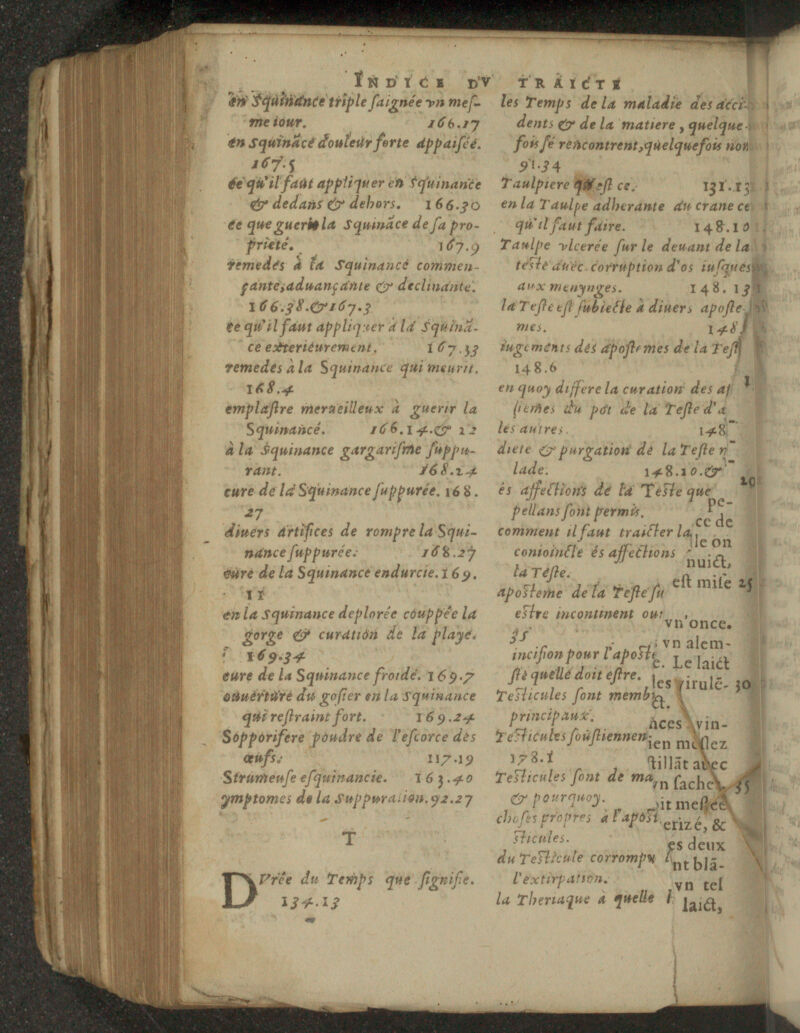 INDICE DV TRAICTE
en Squinance triple saignée vn mes-
me iour. 166.17
en squinãce douleur forte appaisée.
167.5
ce qu'il faut appliquer en squinance
& dedans & dehors. 166.30
ce que guerit la Squinãce de sa pro-
prieté. 167.9
remedes à la Squinance commen-
çante, aduançante & declinante.
166.38.&167.3
ce qu'il faut appliquer à la Squinã-
ce exterieurement. 167.33
remedes à la Squinance qui meurit.
168.4
emplastre merueilleux à guerir la
Squinance. 166.14.& 22
à la Squinance gargarisme suppu-
rant. 168.24
cure de la Squinance suppurée. 168.
27
diuers artifices de rompre la Squi-
nance suppurée. 168.27
cure de la Squinance endurcie. 169.
11
en la Squinance deplorée couppée la
gorge & curation de la playe.
169.34
cure de la Squinance froide. 169.7
ouuerture du gosier en la squinance
qui restraint fort. 169.24
Sopporifere poudre de l'escorce des
œufs. 117.19
Strumeuse esquinancie. 163.40
ymptomes de la Suppuration. 92.27
T
DVrée du Temps que signifie.
134.13
les Temps de la maladie des acci-
dents & de la matiere, quelque-
fois se rencontrent, quelquefois non
91.34
Taulpiere est ce. 131.13
en la Taulpe adherante au crane ce
qu'il faut faire. 148.10
Taulpe vlcerée sur le deuant de la
teste auec corruption d'os iusques
aux menynges. 148.13
la Teste est subiecte à diuers aposte-
mes. 148
iugements des apostemes de la Test
148.6
en quoy differe la curation des a
stemes du pot de la Teste d'a
les autres. 148
diete & purgation de la Teste
lade. 148.10.&
és affections de la Teste que
pellans sont permis.
comment il faut traicter la
conioincte és affections
la Teste.
aposteme de la Teste su
estre incontinent ou
35
incision pour l'aposte
ste quelle doit estre.
Testicules sont memb
principaux.
Testicules soustiennent
178.1
Testicules sont de ma
& pourquoy.
choses propres à l'apost
sticules.
du Testicule corrompu
l'extirpation.
la Theriaque a quelle
10
pe-
ce de
le on
nuict,
est mise 25
vn once.
vn alem-
Le laict
les virulé- 30
aces vin-
ien meslez
stillãt auec
n fache 35
it meslée
erizé, &
es deux
nt blã-
vn tel
laict,